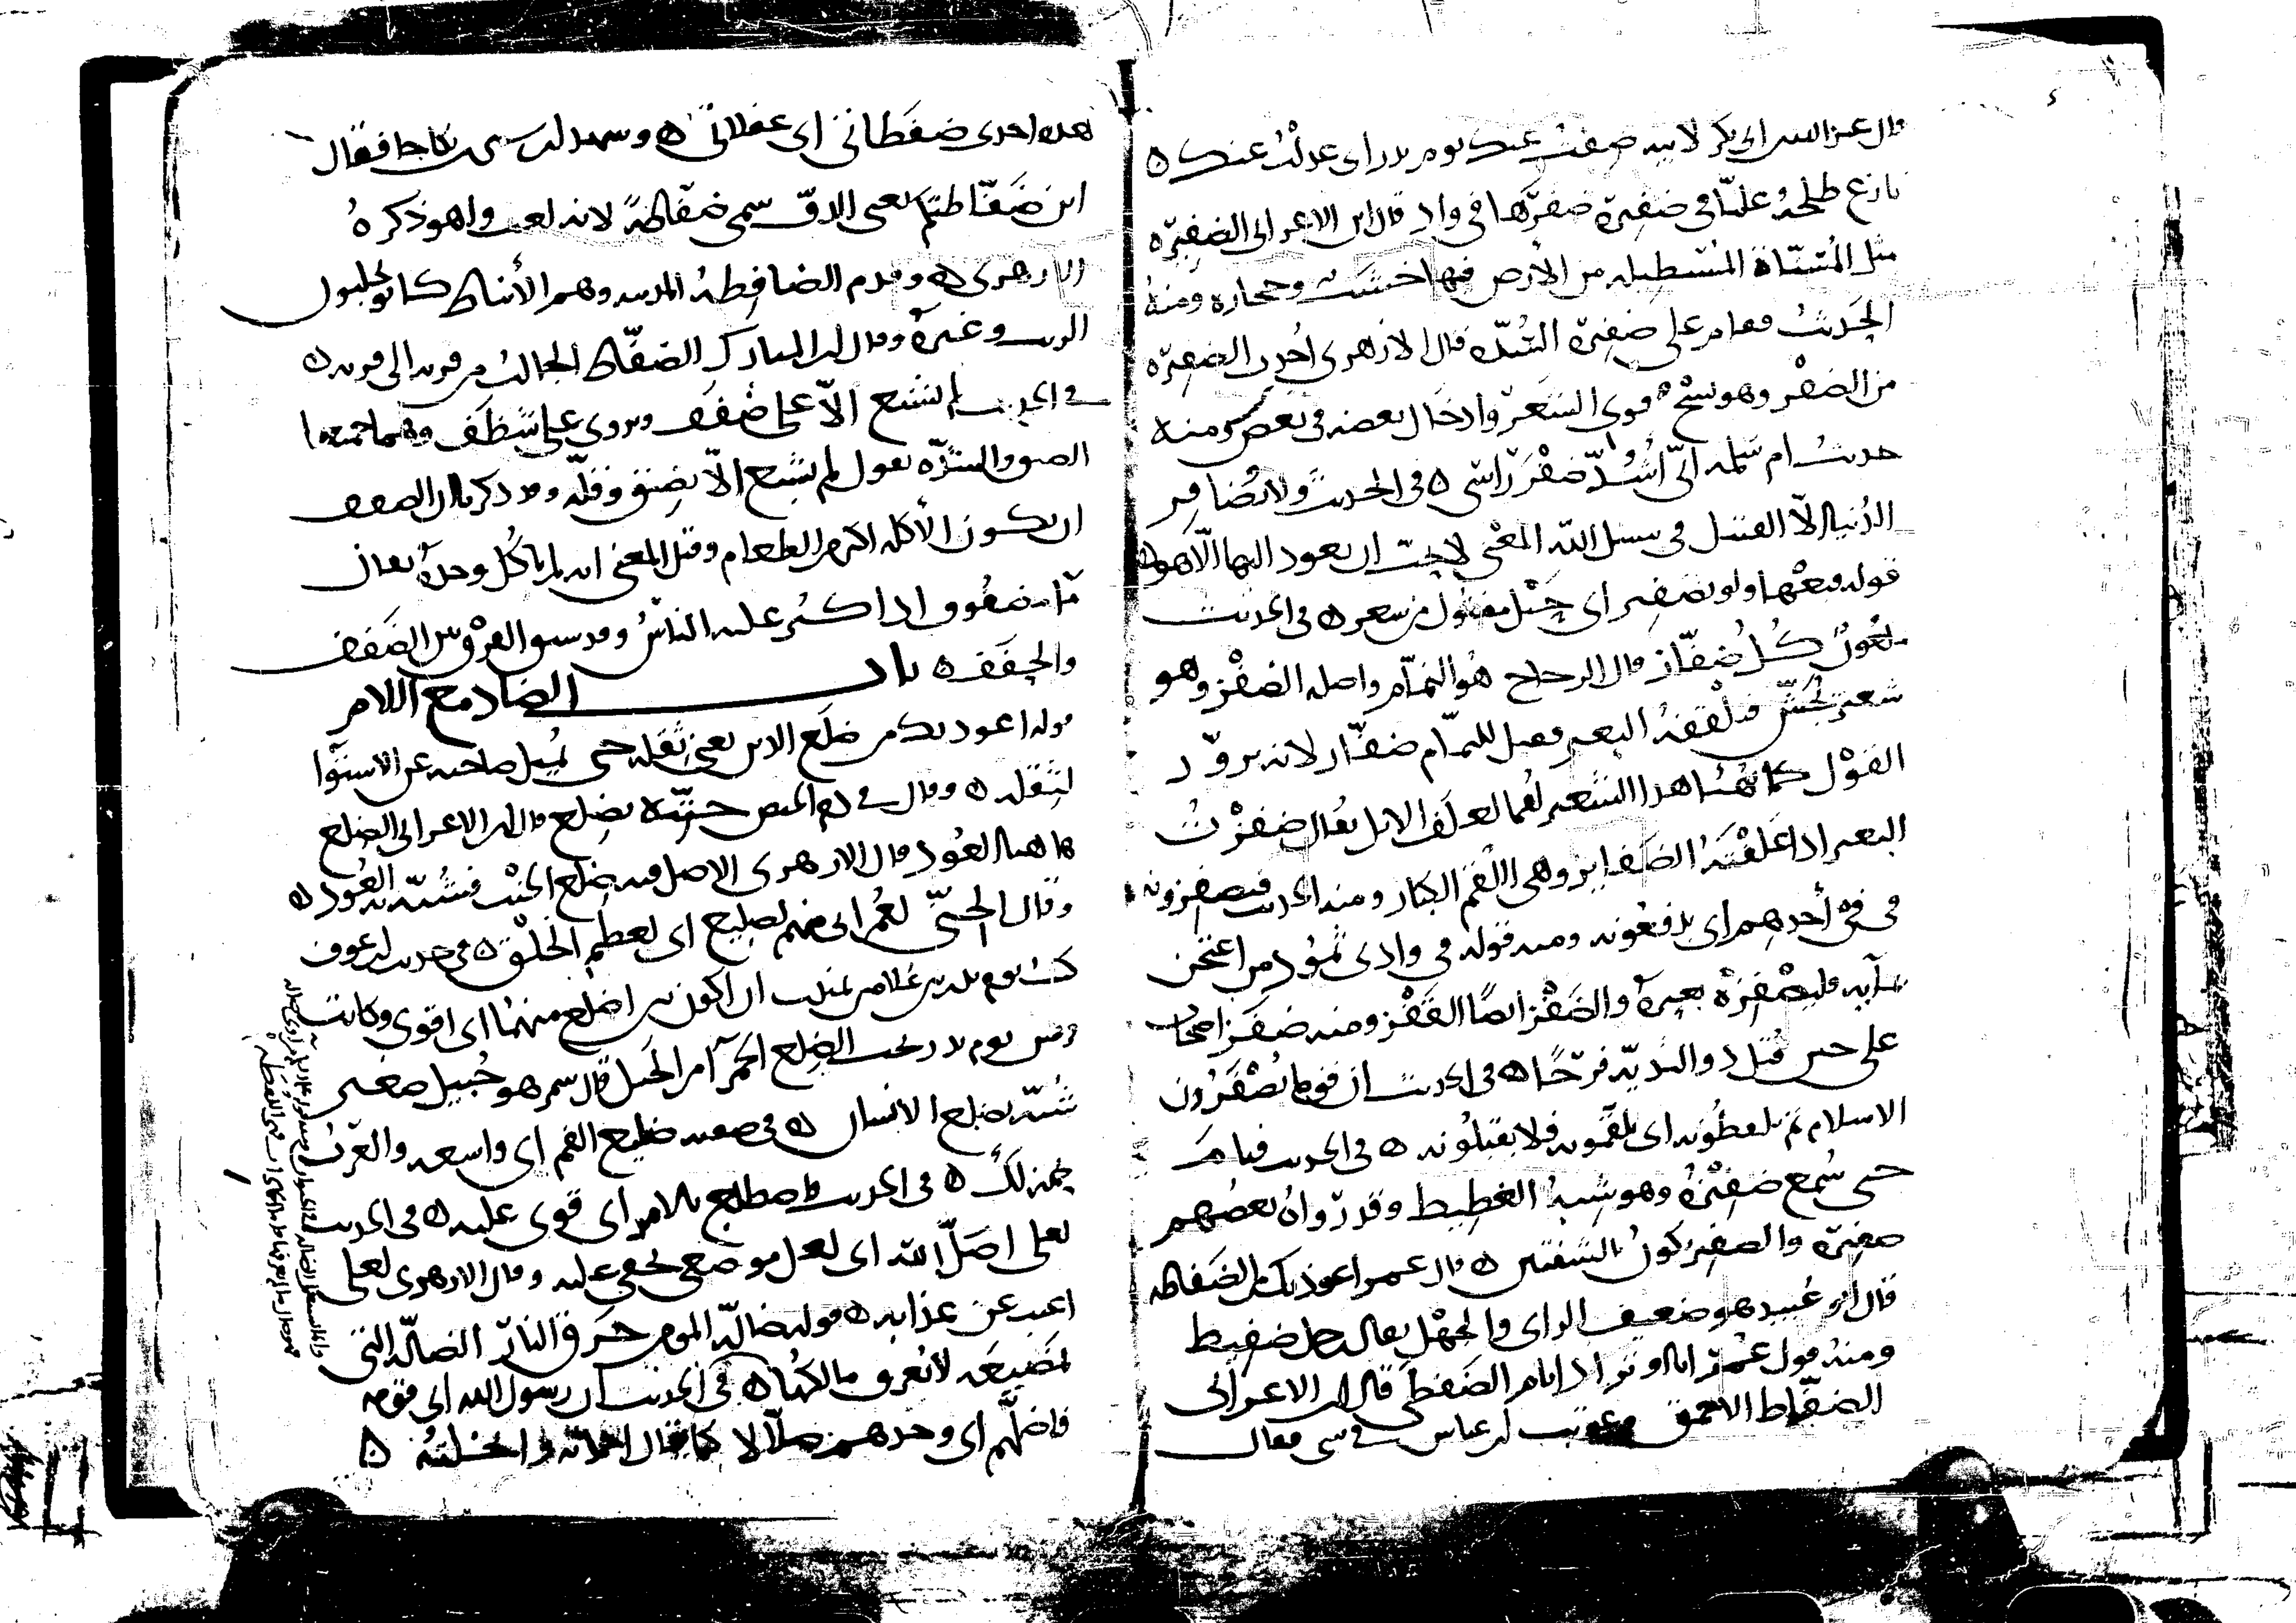 قال عبد الله بن أبي بكر لأبيه ضفت عنك يوم بدر أي عدلت عنك ه
نازع طلحة عليًّا في ضفيرة ضفرها في واد قال ابن الاعرابي الضفيرة
مثل المُسَنّاة المستطيلة من الأرض فيها خشب وحجارة ومنه
الحديث فقام على ضفيرة السُدّة قال الازهري أُخذت الضفيرة
من الضفر وهو نسْج قوى الشعر وادخال بعضه في بعض ومنه
حديث ام سلمة اني أشُدّ ضَفْر رَاسي ه في الحديث ولا تُضافر
الدُنيا الّا القتيل في سبيل الله المعْنى لا يحب ان يعود اليها الّا هو ه
قوله فبعْها ولو بضفير اى حَبْل مفتول من شعر ه في الحديث
ملعون كُل ضفّاز قال الزجاج هو النمّام واصله الضفْز وهو
شعير يُجَشّ فتلْقفهُ البعير وقيل للنمّام ضفّاز لانه يزوّر
القَوْل كما يُهيّأ هذا الشعير لُقما لعلف الابل يقال ضفزْتُ
البعير اذا عَلَفْتَه الضفايز وهى اللُّقم الكبار ومنه الحديث فيضفزونه
في في أحدهم اى يدفعونه ومنه قوله في وادى ثمود من اعتجن
بمآيه فليضْفِزْهُ بعيرَهُ والضَفْز ايضًا القَفْز ومنه ضفز اصحاب
على حين قُتل ذو الثديّة فرَحًا ه في الحديث ان قوما يُضْفَزُون
الاسلام ثم يلفظُونه اى يلقَّمونه فلا يقبلُونه ه في الحديث فنام
حتى سُمع ضفيزُه وهو شبهُ الغطيط وقد رَوَاهُ بعضُهم
صفيرُه والصفير يكونُ بالشفتين ه قال عمر اعوذ بك من الضَفاطه
قال ابو عُبيد هو ضعيف الراى والجهْل يقال رجل ضفيط
ومنه قول عُمر انا اوتر اذا نام الضَفطَى قال ابن الاعرابى
الضفّاط الاحمق وعوتب ابن عباس في شى فقال
هذه احدى ضفَطاتى اى غفلاتى ه وشهد ابن سيرين نكاحا فقال
اين ضَفّاطتكم يعنى الدفّ سمى ضفّاطةً لانه لعب ولهو ذكرهُ
الازهرى ه وقدم الضافِطةُ المدينه وهم الأنباط كانوا يجلبون
الزيت وغيرَهُ وقال ابن المبارك الضفّاط الجالبُ من قريه الى قريه ه
في الحديث لم يشبع الّا على ضَفَف ويروي على شظَف وهما جميعا
الضيق والشدّه يقول لم يشبع الّا بضيق وقلّه وقد ذكر بان الضفف
ان يكون الأكله اكثر من الطعام وقيل المعنى انه لم ياكُل وحدَهُ يقال
مآء مضفوف اذا كثر عليه الناسُ وقد سبق الفرْق بين الضَفف
والحفَف ه باب الضاد مع اللام
قوله اعوذ بك من ضَلَع الدين يعنى ثِقَله حتى يُميل صاحبه عن الاستوآء
لثِقَله ه وقال في دم الحيض حُتِّيه بضِلع قال ابن الاعرابى الضلع
هاهنا العُود قال الازهرى الاصل فيه ضِلع الجنْب فشُبّه به العُود ه
وقال الجنّيّ لعُمر انى منهم لضليع اى لعظيم الخلْق ه في حديث ابن عوف
كنت يوم بدر بين غلامين تمنيت ان اكون بين اضلع منهُما اى اقوى وكانت
شُبّه بضلع الانسان ه في صفته ضليع الفم اى واسعه والعَربُ
يحمد ذلك ه في الحديث فاضطلع بالامر اى قوى عليه ه في الحديث
لعلى اضلّ الله اى لعل موضعى يخفى عليه وقال الازهرى لعلى
اغيب عن عذابه ه قوله ضالّة المومن حَرَق النار الضالّه التى
بمَضيعَه لا يُعرف مالكُها ه في الحديث ان رسول الله اتى قومه
فاضلّهم اى وجدهم ضلّالا كما يقال احمدته وابخلتهُ ه